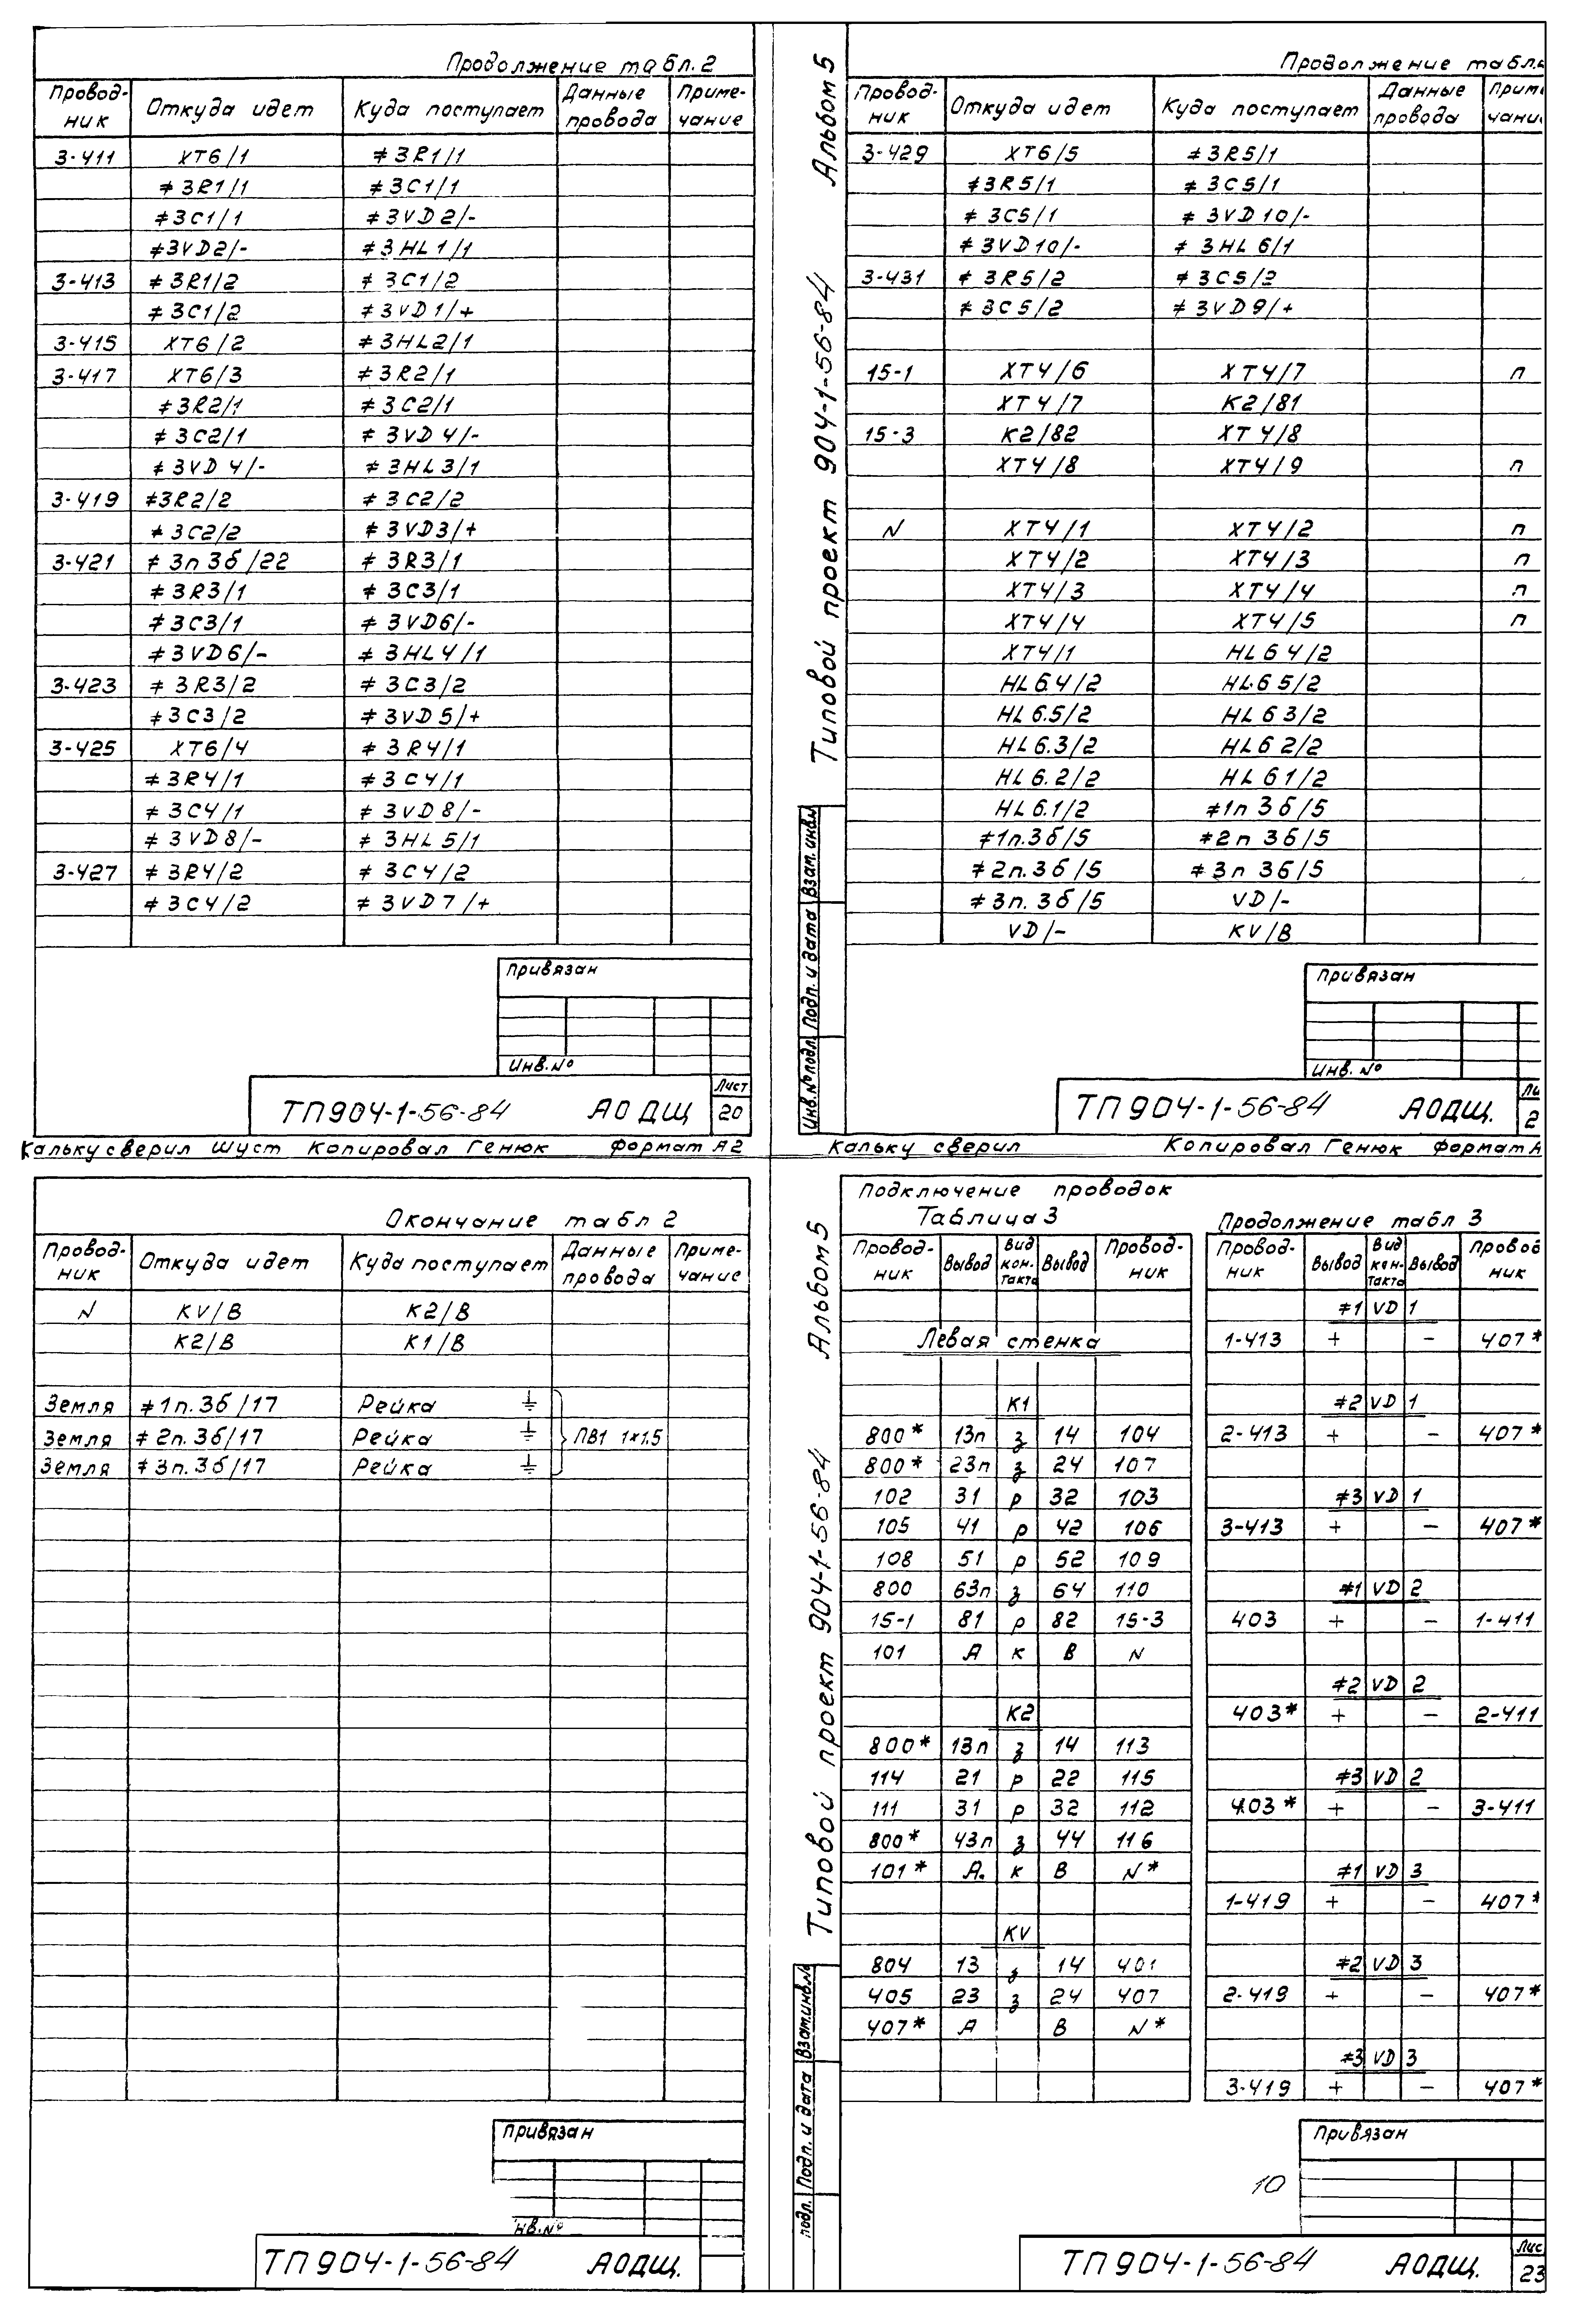 Продолжение табл. 2
Провод-ник Откуда идет Куда поступает Данные провода Приме-чание
3-411 XT6/1 ≠3R1/1
≠3R1/1 ≠3C1/1
≠3C1/1 ≠3VD2/-
≠3VD2/- ≠3HL1/1
3-413 ≠3R1/2 ≠3C1/2
≠3C1/2 ≠3VD1/+
3-415 XT6/2 ≠3HL2/1
3-417 XT6/3 ≠3R2/1
≠3R2/1 ≠3C2/1
≠3C2/1 ≠3VD4/-
≠3VD4/- ≠3HL3/1
3-419 ≠3R2/2 ≠3C2/2
≠3C2/2 ≠3VD3/+
3-421 ≠3п3б/22 ≠3R3/1
≠3R3/1 ≠3C3/1
≠3C3/1 ≠3VD6/-
≠3VD6/- ≠3HL4/1
3-423 ≠3R3/2 ≠3C3/2
≠3C3/2 ≠3VD5/+
3-425 XT6/4 ≠3R4/1
≠3R4/1 ≠3C4/1
≠3C4/1 ≠3VD8/-
≠3VD8/- ≠3HL5/1
3-427 ≠3R4/2 ≠3C4/2
≠3C4/2 ≠3VD7/+
Привязан
Инв.№
ТП904-1-56-84 АОДЩ
Лист
20
Кальку сверил Шуст Копировал Генюк Формат А2
Альбом 5
Типовой проект 904-1-56-84
Взам. инв.№
Подп. и дата
Инв.№ подл.
Продолжение табл.
Провод-ник Откуда идет Куда поступает Данные провода Прим чание
3-429 XT6/5 ≠3R5/1
≠3R5/1 ≠3C5/1
≠3C5/1 ≠3VD10/-
≠3VD10/- ≠3HL6/1
3-431 ≠3R5/2 ≠3C5/2
≠3C5/2 ≠3VD9/+
15-1 XT4/6 XT4/7 п
XT4/7 K2/81
15-3 K2/82 XT4/8
XT4/8 XT4/9 п
N XT4/1 XT4/2 п
XT4/2 XT4/3 п
XT4/3 XT4/4 п
XT4/4 XT4/5 п
XT4/1 HL6 4/2
HL6.4/2 HL6 5/2
HL6.5/2 HL6 3/2
HL6.3/2 HL6 2/2
HL6.2/2 HL6 1/2
HL6.1/2 ≠1п 3б/5
≠1п.3б/5 ≠2п 3б/5
≠2п.3б/5 ≠3п 3б/5
≠3п.3б/5 VD/-
VD/- KV/B
Привязан
Инв. №
ТП904-1-56-84 АОДЩ.
Ли
2
Кальку сверил Копировал Генюк Формат А
Окончание табл 2
Провод-ник Откуда идет Куда поступает Данные провода Приме-чание
N KV/B K2/B
K2/B K1/B
Земля ≠1п.3б/17 Рейка ⏚
Земля ≠2п.3б/17 Рейка ⏚ ПВ1 1×1,5
Земля ≠3п.3б/17 Рейка ⏚
Привязан
нв.№
ТП904-1-56-84 АОДЩ.
Альбом 5
Типовой проект 904-1-56-84
Взам.инв.№
Подп. и дата
подл.
Подключение проводок
Таблица 3
Провод-ник Вывод Вид кон-такта Вывод Провод-ник
Левая стенка
K1
800* 13п з 14 104
800* 23п з 24 107
102 31 р 32 103
105 41 р 42 106
108 51 р 52 109
800 63п з 64 110
15-1 81 р 82 15-3
101 A к B N
K2
800* 13п з 14 113
114 21 р 22 115
111 31 р 32 112
800* 43п з 44 116
101* A. к B N*
KV
804 13 з 14 401
405 23 з 24 407
407* A B N*
Продолжение табл 3
Провод-ник Вывод Вид кон-такта Вывод Провод ник
≠1 VD 1
1-413 + - 407*
≠2 VD 1
2-413 + - 407*
≠3 VD 1
3-413 + - 407*
≠1 VD 2
403 + - 1-411
≠2 VD 2
403* + - 2-411
≠3 VD 2
403* + - 3-411
≠1 VD 3
1-419 + - 407*
≠2 VD 3
2-419 + - 407*
≠3 VD 3
3-419 + - 407*
Привязан
10
ТП904-1-56-84 АОДЩ.
Лис
23